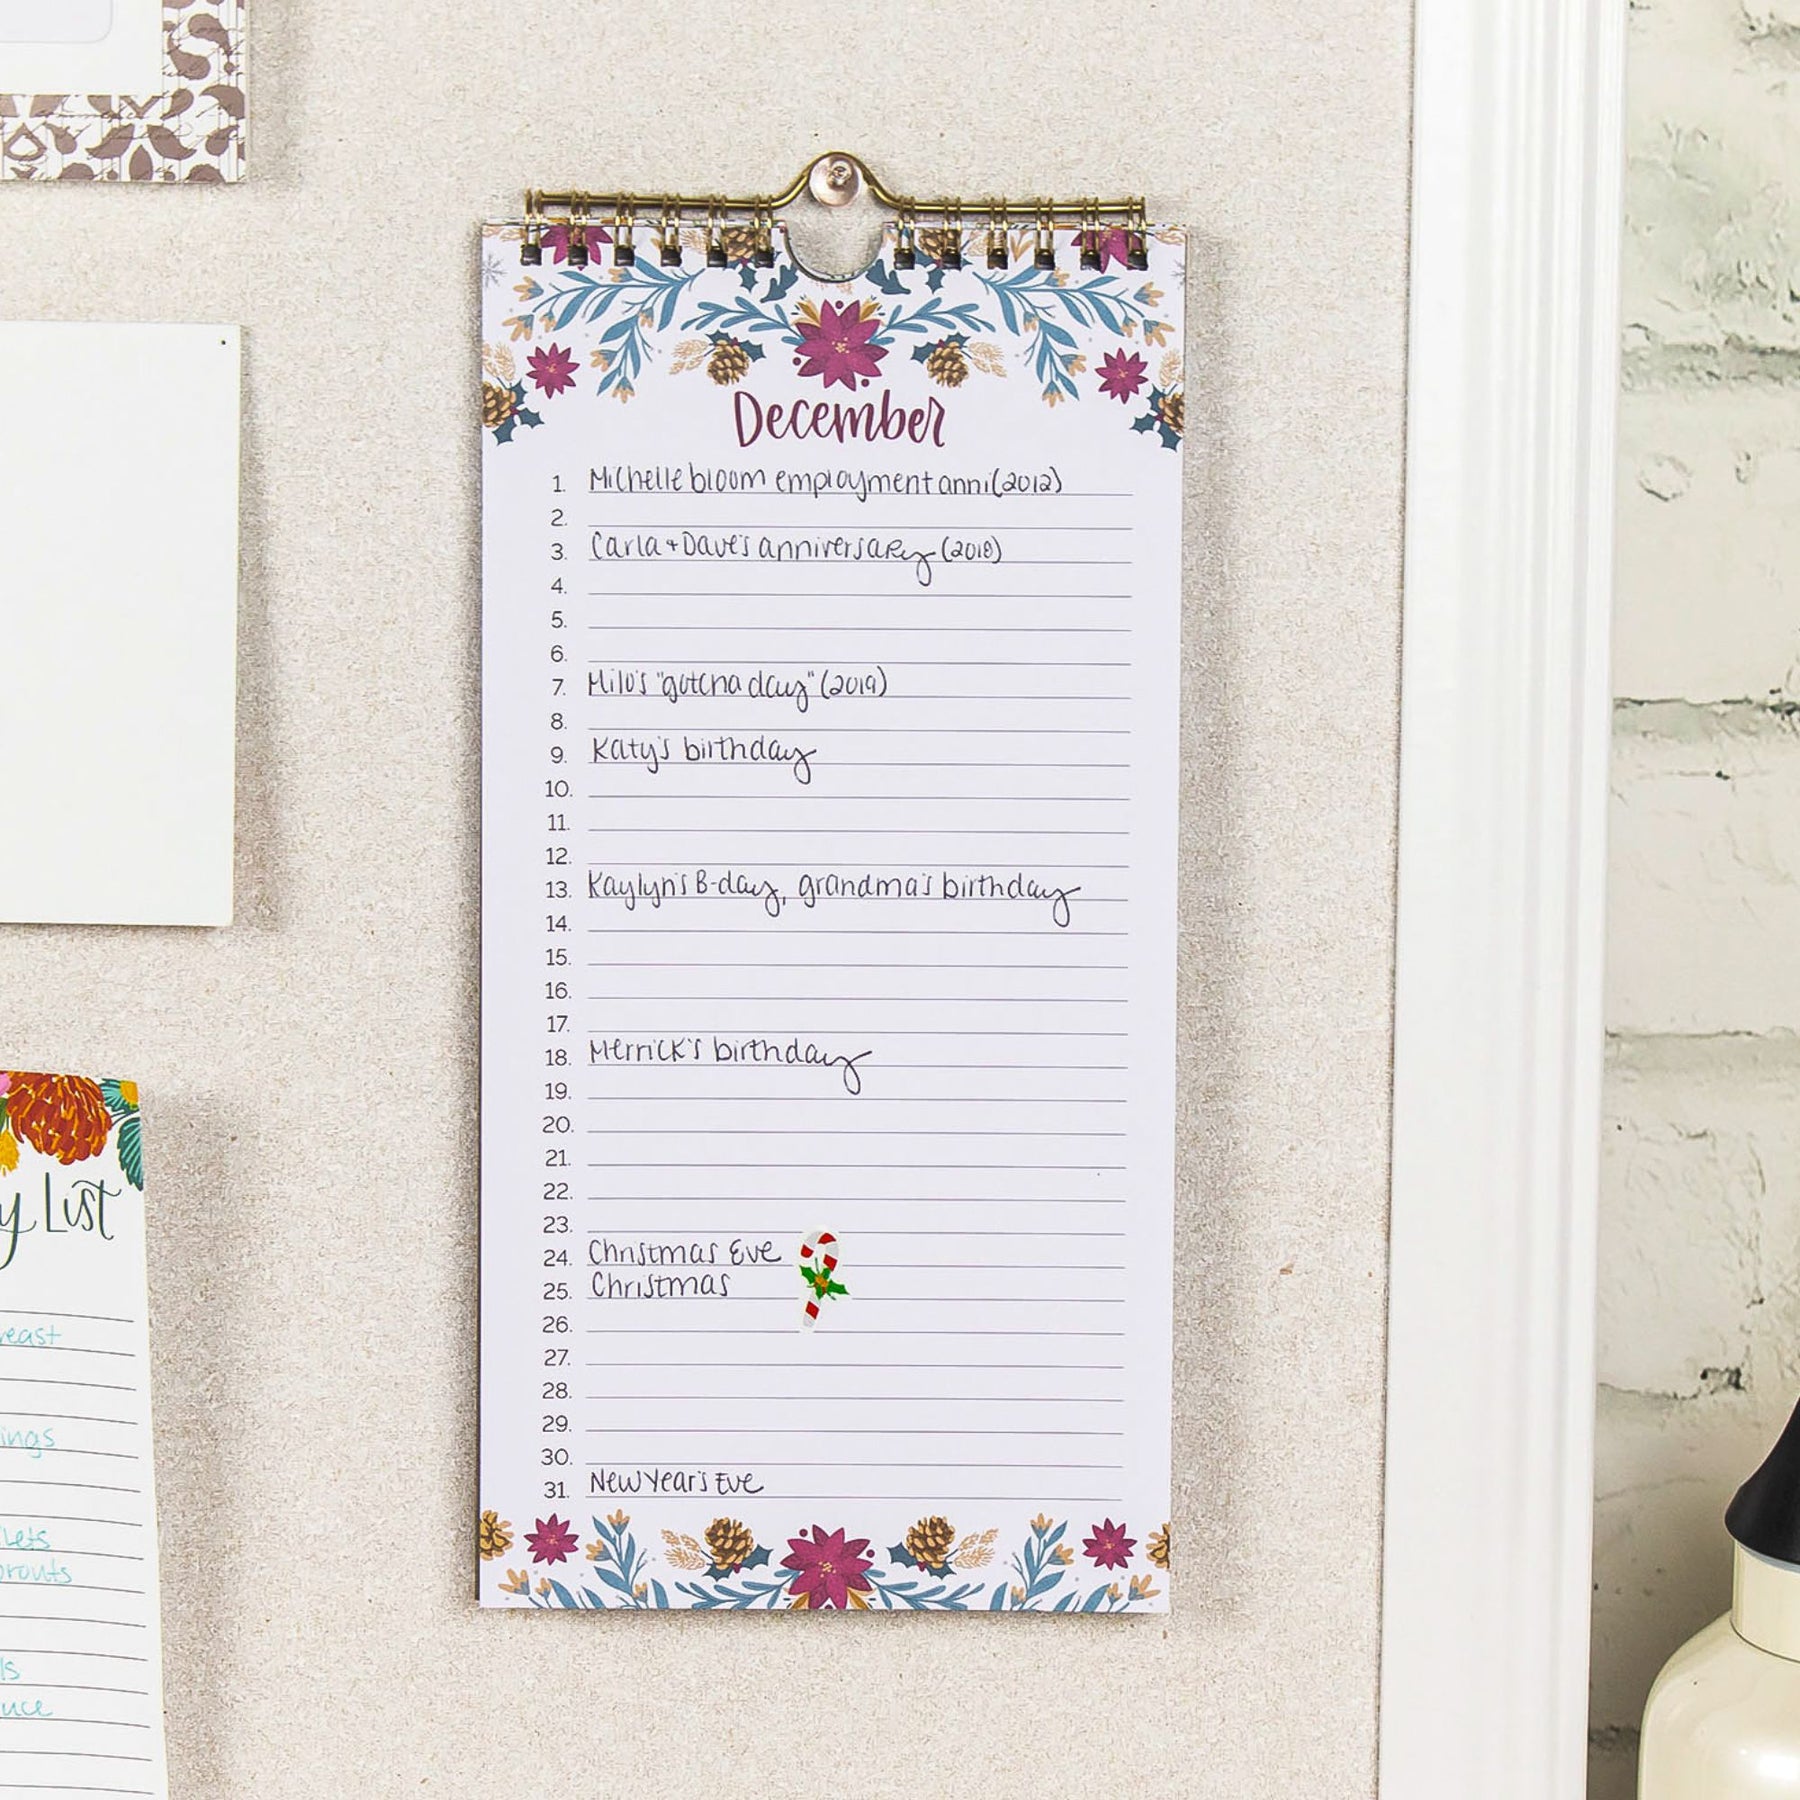 December
1. Michelle bloom employment anni (2012)
2.
3. Carla + Dave's anniversary (2018)
4.
5.
6.
7. Milo's "gotcha day" (2019)
8.
9. Katy's birthday
10.
11.
12.
13. Kaylyn's B-day, grandma's birthday
14.
15.
16.
17.
18. Merrick's birthday
19.
20.
21.
22.
23.
24. Christmas Eve
25. Christmas
26.
27.
28.
29.
30.
31. New Year's Eve
y List
reast
ings
lets
prouts
ls
uce